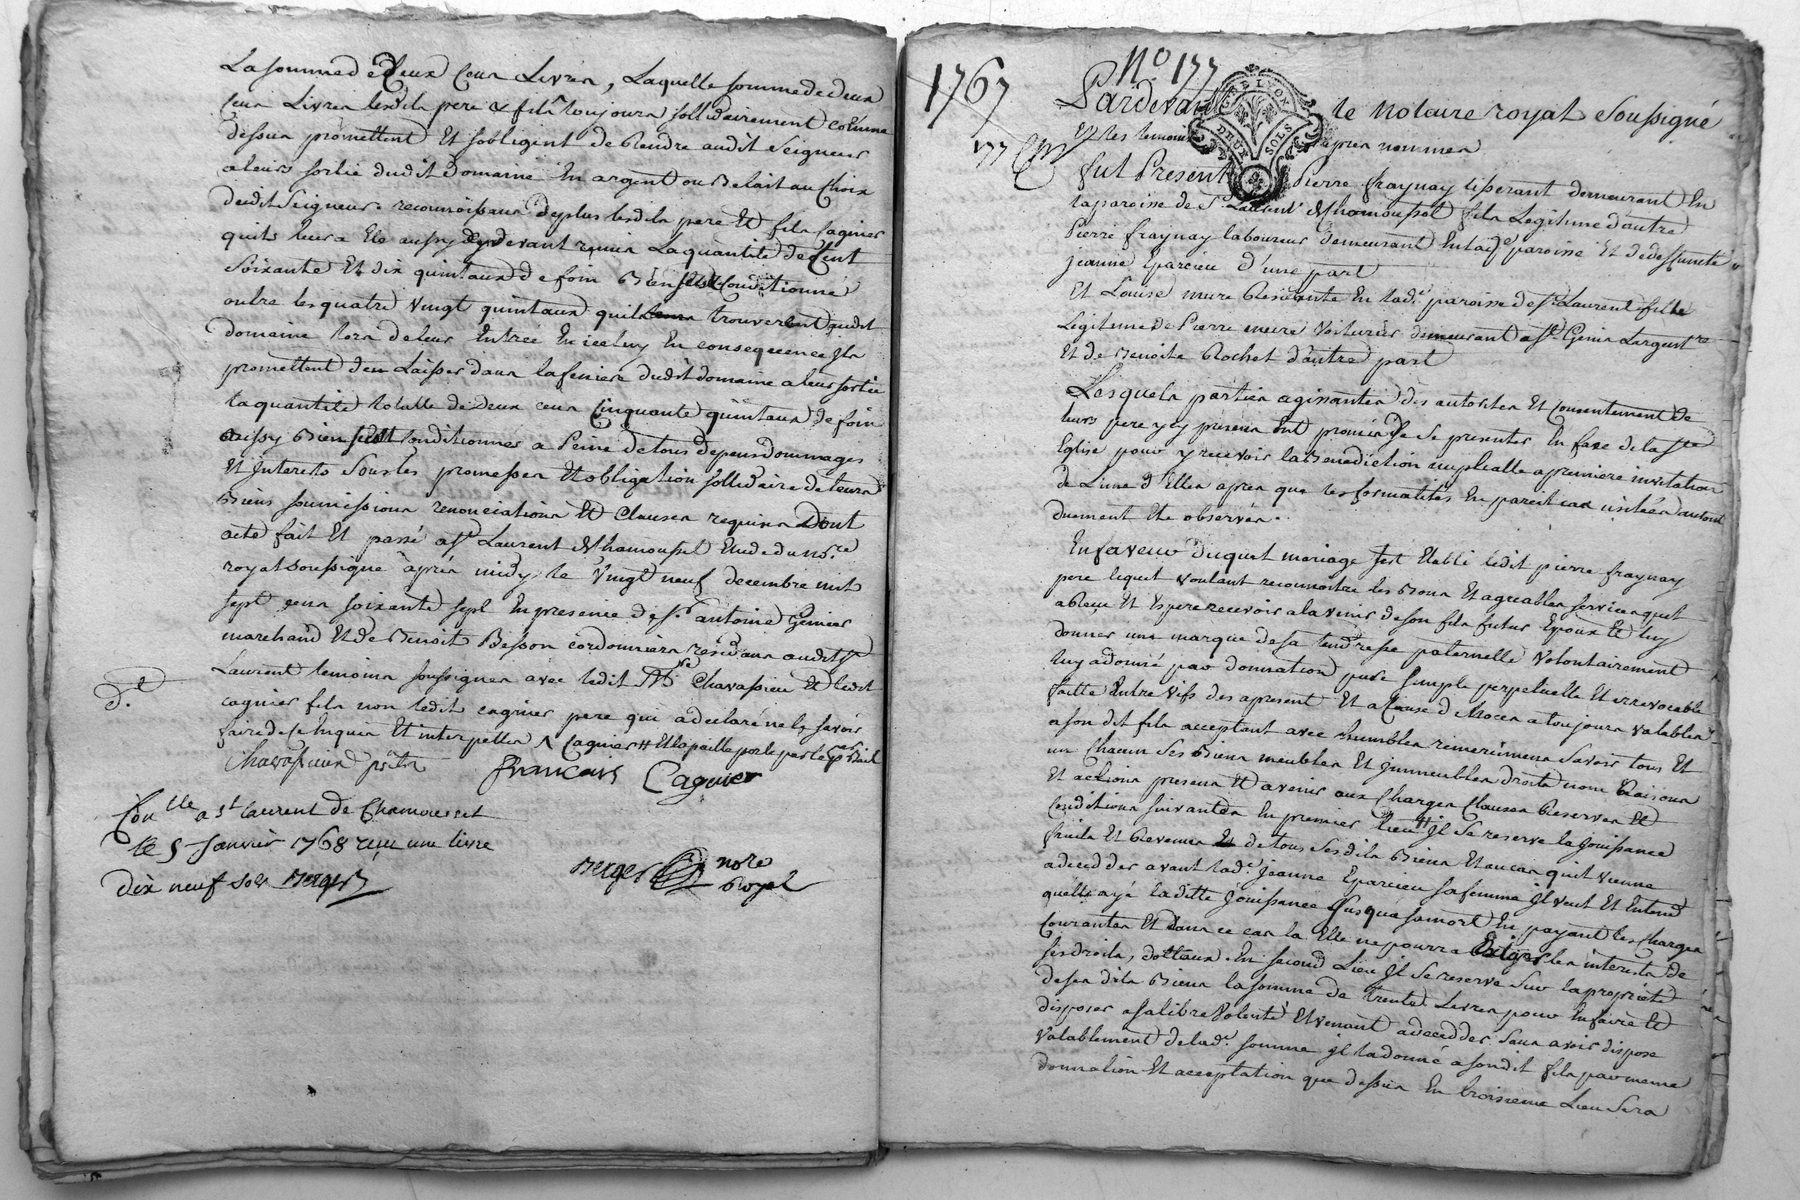 La somme de deux cens Livres, Laquelle somme de deux
cens Livres lesdits pere & fils toujours sollidairement comme
dessus promettent Et sobligent de Rendre audit Seigneur
a leur sortie dudit Domaine En argent ou Betail au Choix
dudit Seigneur. reconnoissans deplus lesdits pere Et fils Cagnier
quils leur a Ete aussy cydevant remis La quantité de Cent
Soixante Et dix quintaux de foin Bien Conditionné
outre les quatre vingt quintaux quils trouverent audit
domaine lors de leur Entrée En iceluy En consequence Ils
promettent den Laisser dans la feniere dudit domaine a leur sortie
la quantité totalle de Deux cens Cinquante quintaux de foin
aussy Bien Conditionnes a Peine de tous depens dommages
Et Interests Sous les promesses Et obligation sollidaire de leurs
Biens soumissions renonciations Et Clauses requises Dont
acte fait Et passé a St Laurent de Chamousset Etude du nore
royal soussigné après midy le vingt neuf decembre mil
sept cens soixante sept En presence de sr antoine Genier
marchand Et de Benoit Besson cordonniers residans audit St
Laurent temoins soussignes avec ledit Mre Chavassieu Et ledit
cagnier fils non ledit cagnier pere qui a declaré ne le savoir
faire de ce Enquis Et interpellés Cagnier # Et la paille porte par le Bail
Chavassieux ptre François Cagnier
Conlle a St Laurent de Chamousset
le 5 Janvier 1768 reçu une livre
Dix neuf sols Berger
Berger nore
Royal
dt.
1767
177
No. 177
Pardevant le Notaire royal Soussigné
Et les temoins après nommes
GNE LYON
DEUX SOLS
fut Present Pierre fraynay tisserant demeurant En
la paroisse de St Laurent de Chamousset fils Legitime d'autre
Pierre fraynay laboureur demeurant En lade paroisse Et de deffunte
jeanne Eparcieu d'une part
Et Louise mure Residante En lade paroisse de St Laurent fille
Legitime de Pierre mure Voiturier demeurant a St Genis Largentre
Et de Benoite Rochet d'autre part
Lesquels parties agissantes des autorites Et Consentement de
leurs pere icy presens Ont promis de se presenter En face de la Ste
Eglise pour y recevoir la Benediction nuptialle a premiere invitation
de L'une d'Elles apres que les formalités En pareil cas usitées auront
duement Ete observés.
En faveur Duquel mariage sest Etabli ledit pierre fraynay
pere lequel voulant reconnoitre les Bons Et agreables services quil
a Reçu Et Espere recevoir a la venir de son fils futur Epoux Et luy
donner une marque de sa tendresse paternelle Volontairement
luy a donné par donnation pure simple perpetuelle Et irrevocable
faitte Entre vifs des apresent Et a Cause de Noces a toujours valables
a son dit fils acceptant avec humbles remerciemens Savoir tous Et
un Chacun Ses Biens meubles Et Immeubles droits nom Raisons
Et actions presens Et avenir aux Charges Clauses Reserves Et
Conditions suivantes En premier Lieu Il se reserve la Jouissance
fruits Et Revenus Et de tous Sesdits Biens Et au cas quil vienne
a deceder avant lade Jeanne Eparcieu sa femme Il veut Et Entend
quelle aye laditte Jouissance Jusqua sa mort En payant les Charges
Courantes Et dans ce cas la Elle ne pourra Exiger les interests de
ses droits, dottaux. En second Lieu Il Se reserve Sur la propriété
de ses dits Biens la somme de trente Livres pour En faire Et
disposer a sa libre Volonté Et venant a deceder sans avoir dispose
valablement de lade somme Il la donné a sondit fils par meme
donnation Et acceptation que dessus En troisieme Lieu Sera